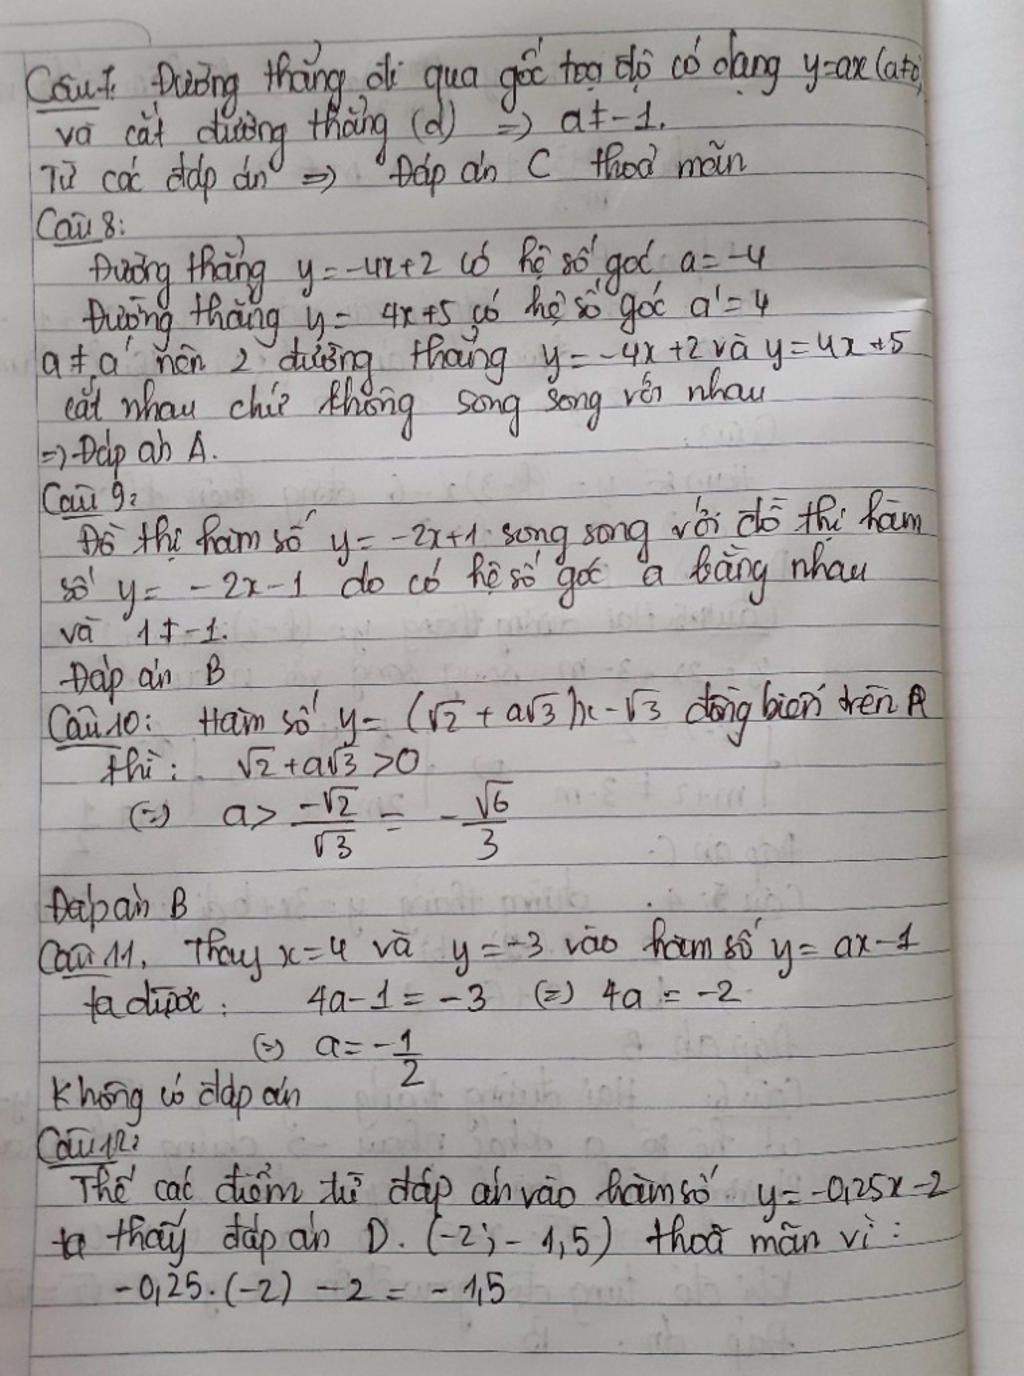 Câu 7: Đường thẳng đi qua gốc toạ độ có dạng y=ax (a≠0)
và cắt đường thẳng (d) => a≠-1.
Từ các đáp án => Đáp án C thoả mãn
Câu 8:
Đường thẳng y=-4x+2 có hệ số góc a=-4
Đường thẳng y= 4x+5 có hệ số góc a'=4
a≠a' nên 2 đường thẳng y=-4x+2 và y=4x+5
cắt nhau chứ không song song với nhau
=> Đáp án A.
Câu 9:
Đồ thị hàm số y= -2x+1 song song với đồ thị hàm
số y= -2x-1 do có hệ số góc a bằng nhau
và 1≠-1.
Đáp án B
Câu 10: Hàm số y= (√2 + a√3)x - √3 đồng biến trên R
thì: √2+a√3 >0
(=) a> -√2/√3 = -√6/3
Đáp án B
Câu 11, Thay x=4 và y=-3 vào hàm số y= ax-1
ta được: 4a-1 = -3 (=) 4a = -2
(=) a= -1/2
Không có đáp án
Câu 12:
Thế các điểm từ đáp án vào hàm số y=-0,25x-2
ta thấy đáp án D. (-2;-1,5) thoã mãn vì:
-0,25.(-2) -2 = -1,5